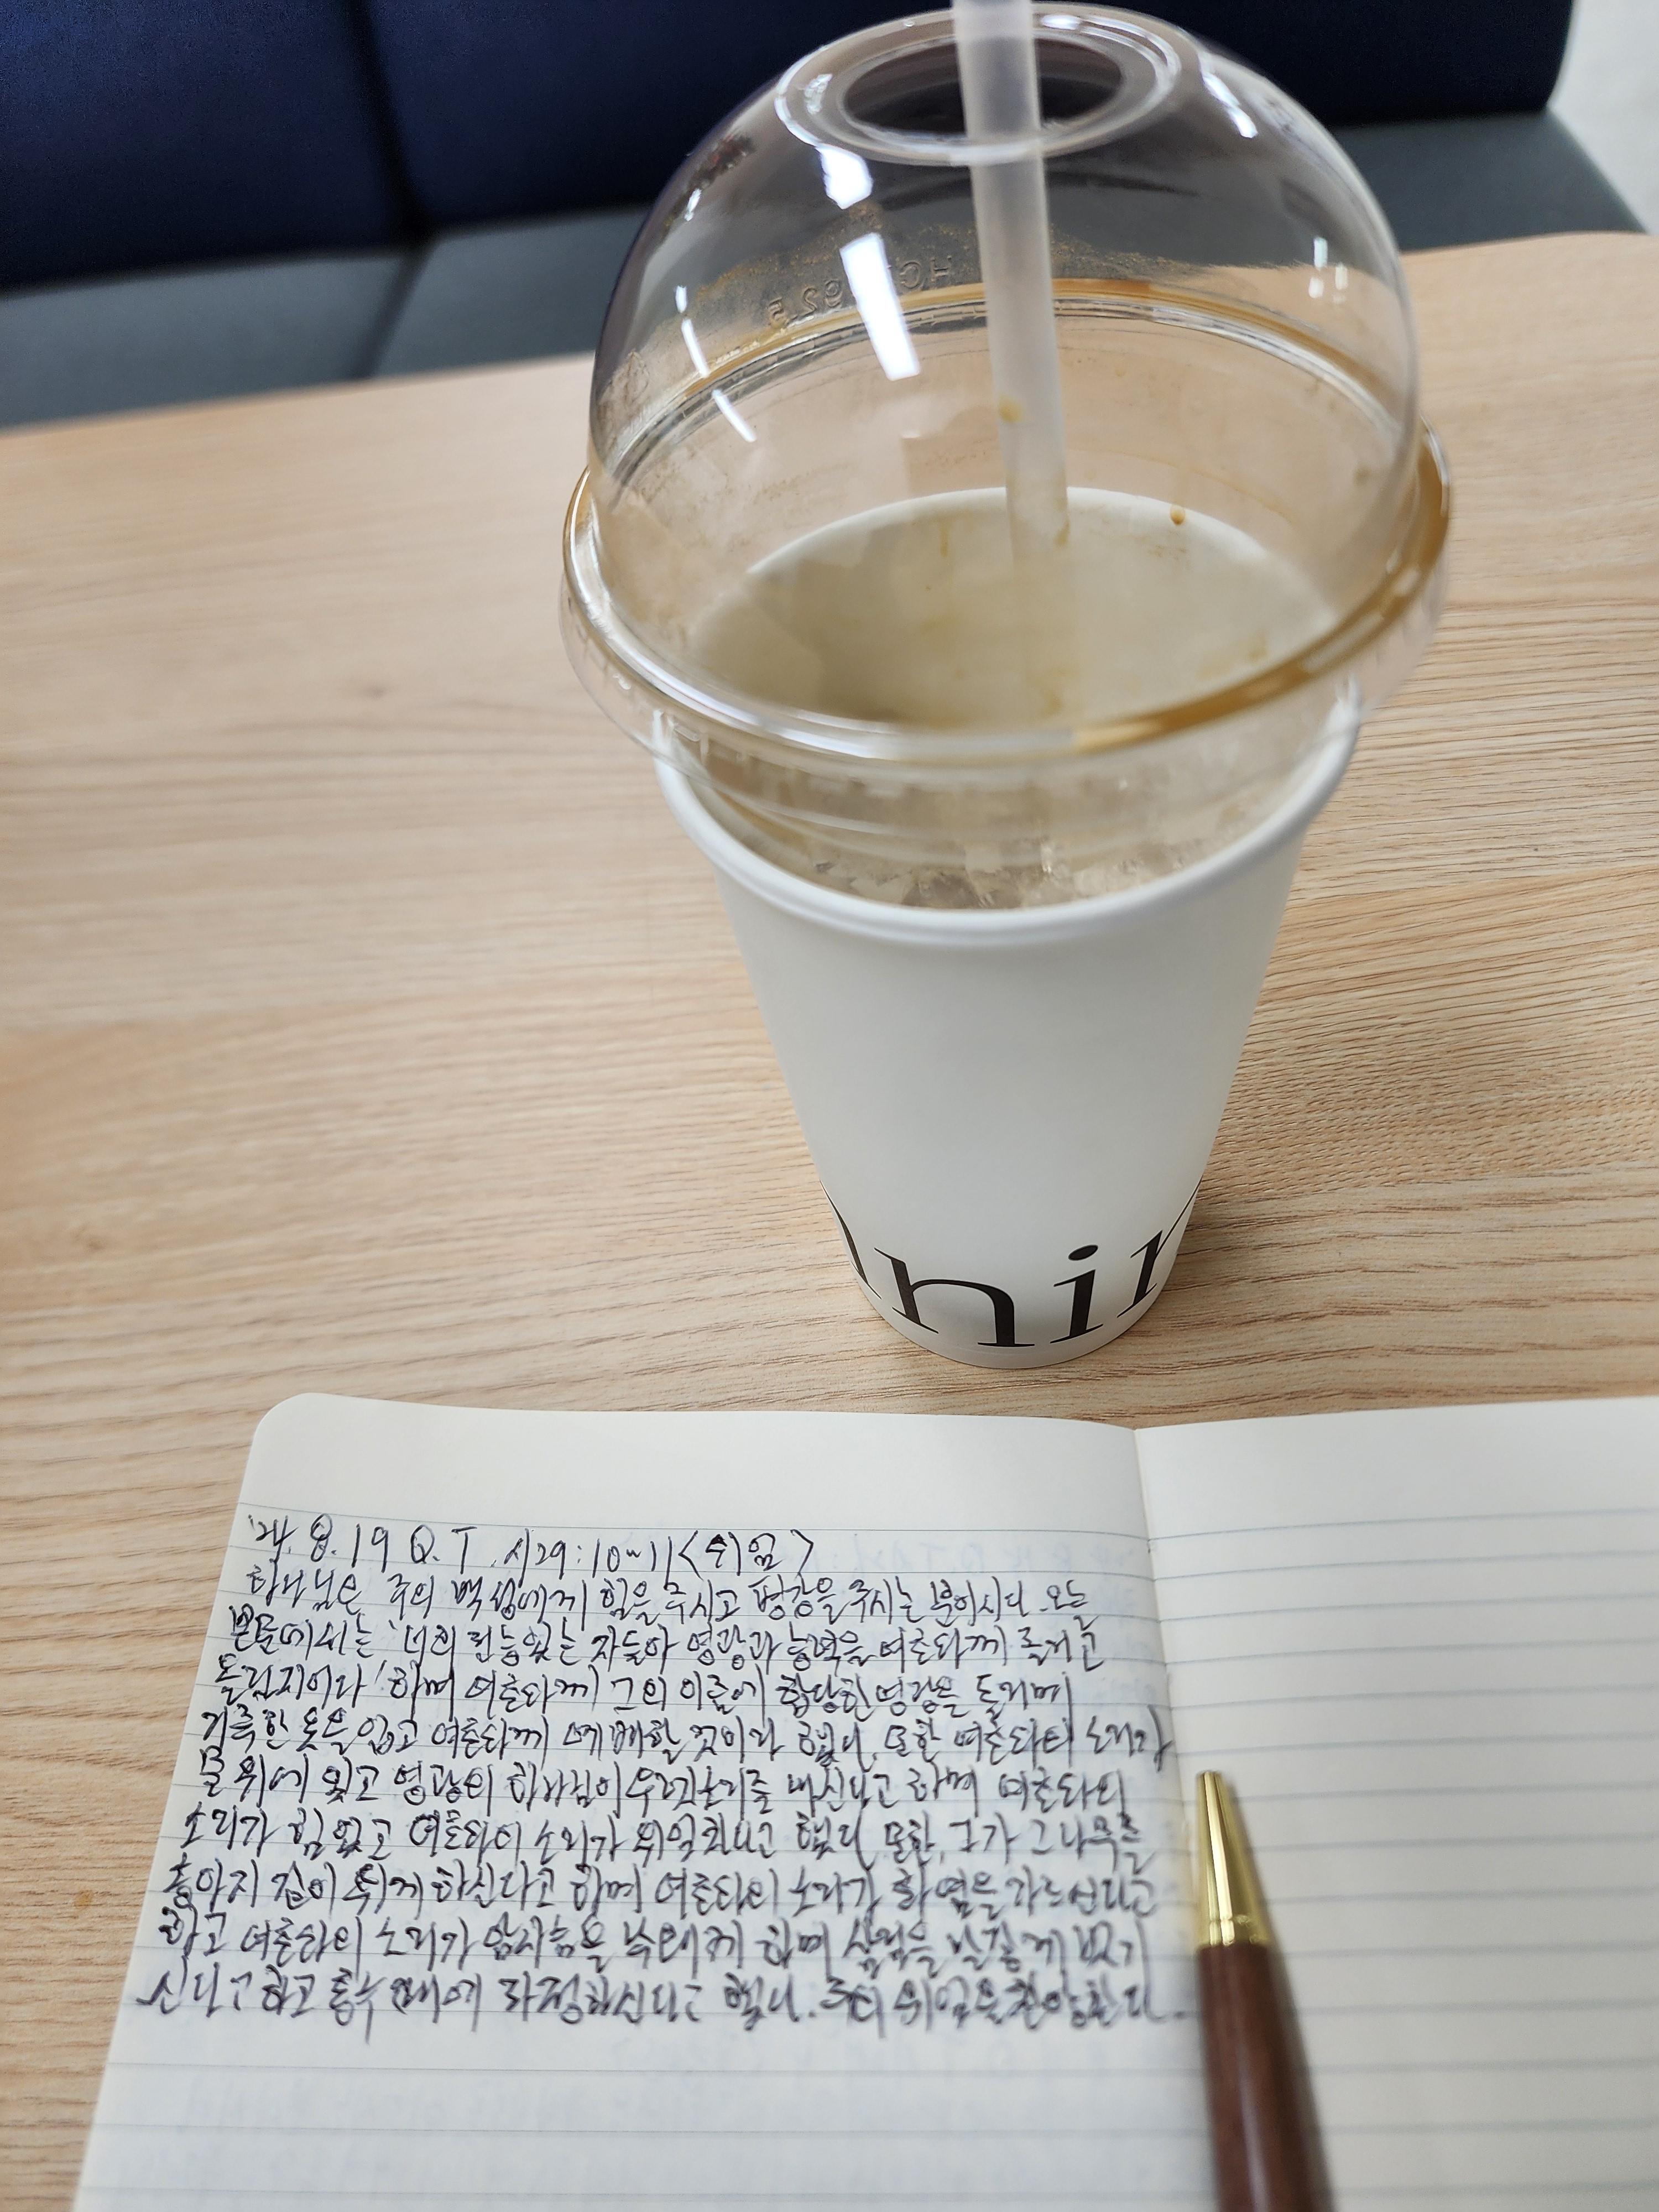 HC 62.5
hin
'24. 8. 19 Q.T 시29:10~11 <위엄>
하나님은 주의 백성에게 힘을 주시고 평강을 주시는 분이시다. 오늘
본문에서는 '너희 권능있는 자들아 영광과 능력을 여호와께 돌리고
돌릴지어다' 하며 여호와께 그의 이름에 합당한 영광을 돌리며
거룩한 옷을 입고 여호와께 예배할 것이라 했다. 또한 여호와의 소리가
물 위에 있고 영광의 하나님이 우렛소리를 내신다고 하며 여호와의
소리가 힘 있고 여호와의 소리가 위엄차다고 했다. 또한, 그가 그 나무를
송아지 같이 뛰게 하신다고 하며 여호와의 소리가 화염을 가르신다고
하고 여호와의 소리가 암사슴을 낙태하게 하며 삼림을 말갛게 벗기
신다고 하고 홍수 때에 좌정하신다고 했다. 주의 위엄을 찬양한다.